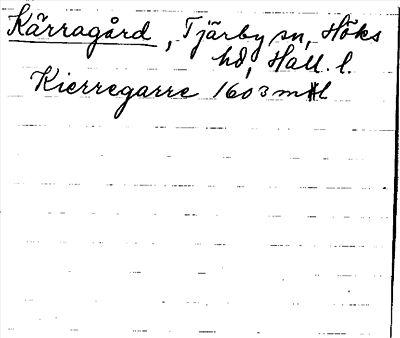 Kärragård, Tjärby sn, Höks
hd, Hall. l.
Kierregarre 1603 mtl